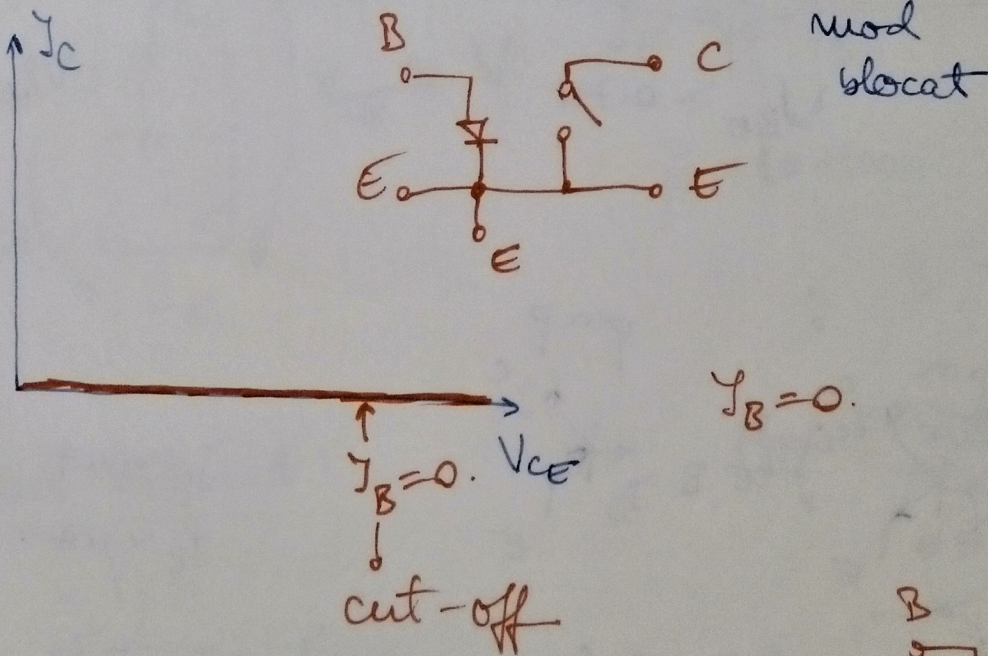 I_C
B
C
mod
blocat
E
E
E
I_B=0.
V_CE
I_B=0.
cut-off
B